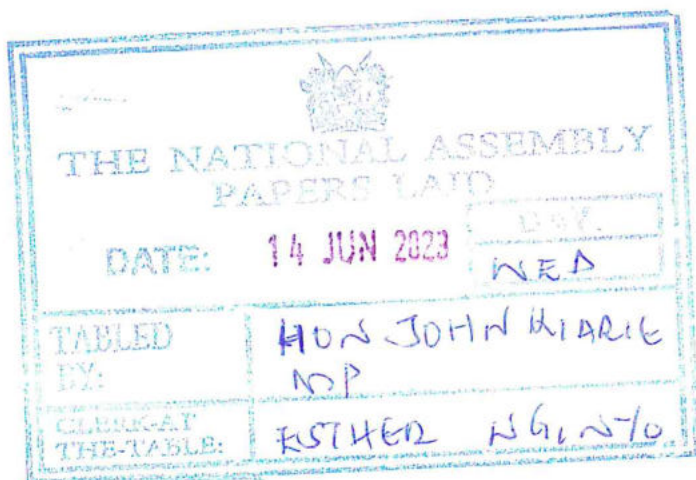 THE NATIONAL ASSEMBLY
PAPERS LAID
DATE: 14 JUN 2023
DAY.
WED
TABLED BY:
HON JOHN KIARIE
MP
CLERK-AT
THE-TABLE:
ESTHER